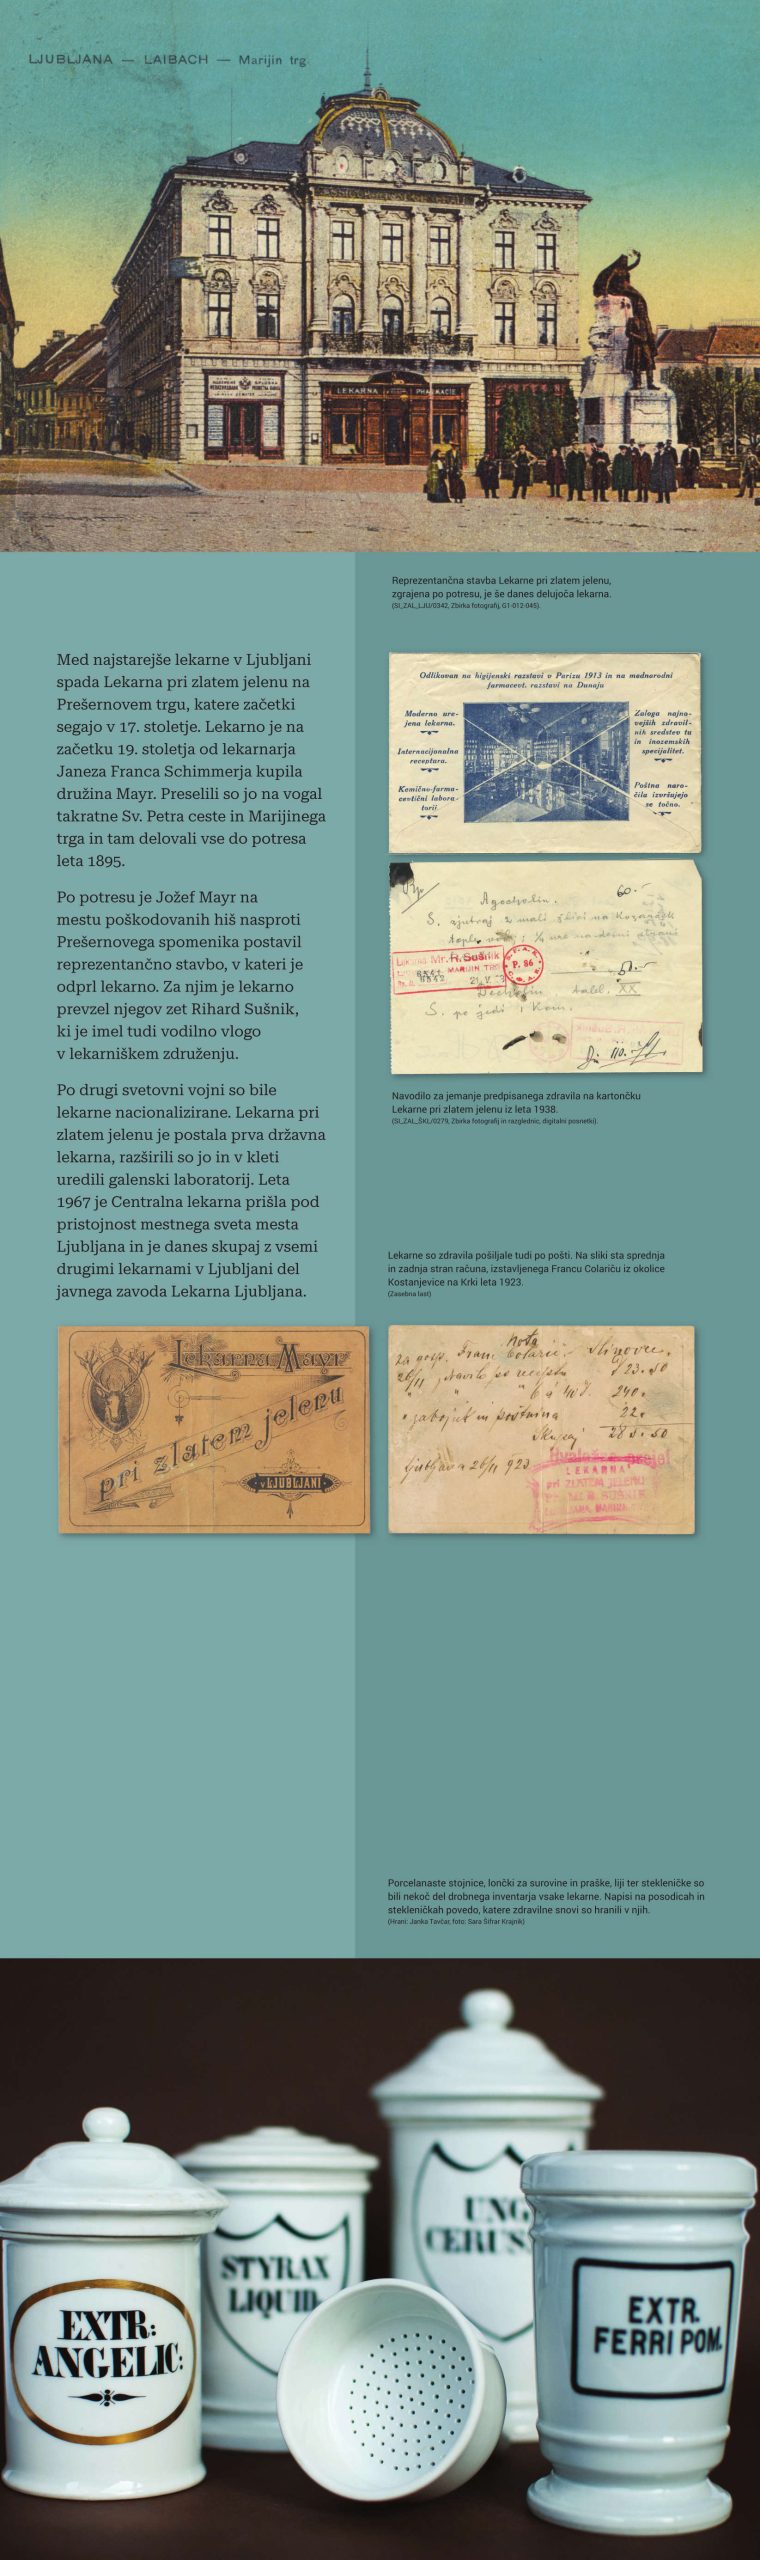 LJUBLJANA — LAIBACH — Marijin trg
LEKARNA PHARMACIE
Reprezentančna stavba Lekarne pri zlatem jelenu,
zgrajena po potresu, je še danes delujoča lekarna.
(SI_ZAL_LJU/0342, Zbirka fotografij, G1-012-045).
Med najstarejše lekarne v Ljubljani
spada Lekarna pri zlatem jelenu na
Prešernovem trgu, katere začetki
segajo v 17. stoletje. Lekarno je na
začetku 19. stoletja od lekarnarja
Janeza Franca Schimmerja kupila
družina Mayr. Preselili so jo na vogal
takratne Sv. Petra ceste in Marijinega
trga in tam delovali vse do potresa
leta 1895.
Po potresu je Jožef Mayr na
mestu poškodovanih hiš nasproti
Prešernovega spomenika postavil
reprezentančno stavbo, v kateri je
odprl lekarno. Za njim je lekarno
prevzel njegov zet Rihard Sušnik,
ki je imel tudi vodilno vlogo
v lekarniškem združenju.
Po drugi svetovni vojni so bile
lekarne nacionalizirane. Lekarna pri
zlatem jelenu je postala prva državna
lekarna, razširili so jo in v kleti
uredili galenski laboratorij. Leta
1967 je Centralna lekarna prišla pod
pristojnost mestnega sveta mesta
Ljubljana in je danes skupaj z vsemi
drugimi lekarnami v Ljubljani del
javnega zavoda Lekarna Ljubljana.
Odlikovan na higijenski razstavi v Parizu 1913 in na mednarodni
farmacevt. razstavi na Dunaju
Moderno ure-
jena lekarna.
Internacijonalna
receptura.
Kemično-farma-
cevtični labora-
torij.
Zaloga najno-
vejših zdravil-
nih sredstev tu
in inozemskih
specijalitet.
Poštna naro-
čila izvršujejo
se točno.
60.-
S. zjutraj 2 mali žlici na
Lekarna Mr. R. Sušnik
MARIJIN TRG
P. 86
tabl. XX
S. po jedi
110.-
Navodilo za jemanje predpisanega zdravila na kartončku
Lekarne pri zlatem jelenu iz leta 1938.
(SI_ZAL_ŠKL/0279, Zbirka fotografij in razglednic, digitalni posnetki).
Lekarne so zdravila pošiljale tudi po pošti. Na sliki sta sprednja
in zadnja stran računa, izstavljenega Francu Colariču iz okolice
Kostanjevice na Krki leta 1923.
(Zasebna last)
Lekarna Mayr
pri zlatem jelenu
v LJUBLJANI
Nota
za gosp. Franc Colarič - Slinovce.
26/11
23.50
240.
zabojček in poštnina 22.
Skupaj 285.50
Ljubljana 26/11 923
LEKARNA
pri ZLATEM JELENU
SUŠNIK
Porcelanaste stojnice, lončki za surovine in praške, liji ter stekleničke so
bili nekoč del drobnega inventarja vsake lekarne. Napisi na posodicah in
stekleničkah povedo, katere zdravilne snovi so hranili v njih.
(Hrani: Janka Tavčar, foto: Sara Šifrar Krajnik)
EXTR:
ANGELIC:
STYRAX
LIQUID.
UNG.
CERUS
EXTR.
FERRI POM.